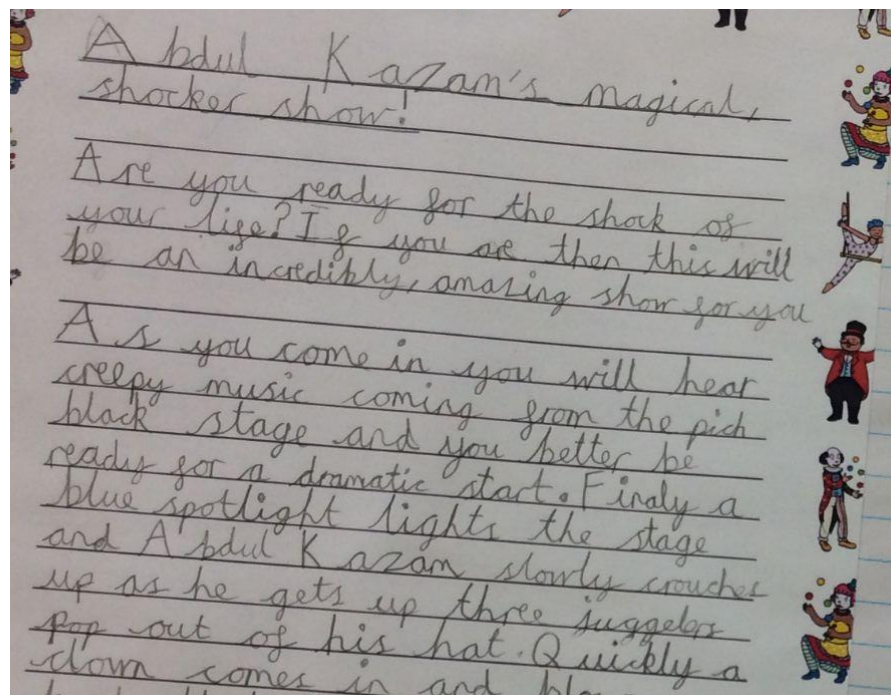 Abdul Kazam's magical,
shocker show!
Are you ready for the shock of
your life? If you are then this will
be an incredibly, amazing show for you
As you come in you will hear
creepy music coming from the pich
black stage and you better be
ready for a dramatic start. Finaly a
blue spotlight lights the stage
and Abdul Kazam slowly crouches
up as he gets up three juggelers
Pop out of his hat. Quickly a
clown comes in and